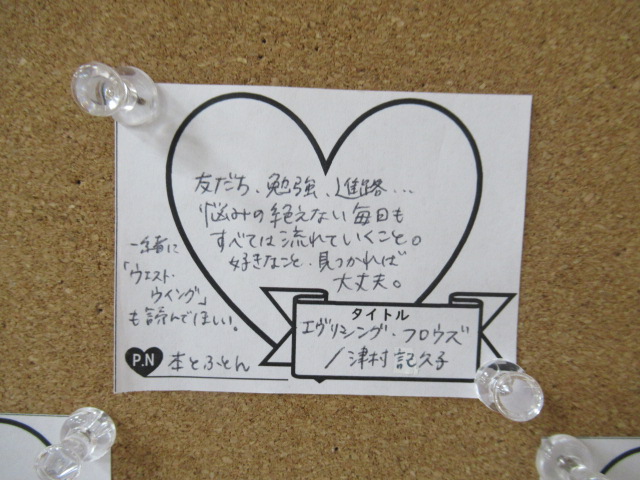 友だち、勉強、進路...
悩みの絶えない毎日も
すべては流れていくこと。
好きなこと、見つかれば
大丈夫。
一緒に
「ウエスト・
ウイング」
も読んでほしい。
タイトル
エヴリシング・フロウズ
/津村記久子
P.N 本とふとん